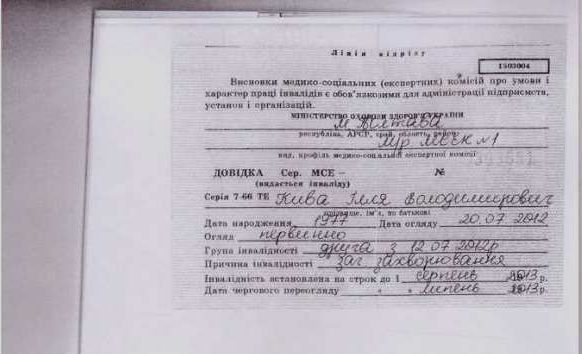 Лінія відрізу
1503004
Висновки медико-соціальних (експертних) комісій про умови і
характер праці інвалідів є обов'язковими для адміністрації підприємств,
установ і організацій.
МІНІСТЕРСТВО ОХОРОНИ ЗДОРОВ'Я УКРАЇНИ
м Полтава
республіка, АРСР, край, область, район
МСЕК №1
вид, профіль медико-соціальної експертної комісії
ДОВІДКА Сер. МСЕ – №
(видається інваліду)
Серія 7-66 ТЕ Кива Ілля Володимирович
прізвище, ім'я, по батькові
Дата народження 1977 Дата огляду 20.07 2012
Огляд первинно
Група інвалідності друга з 12.07.2012р
Причина інвалідності заг захворювання
Інвалідність встановлена на строк до 1 серпень 2013 р.
Дата чергового переогляду „ „ липень 2013 р.